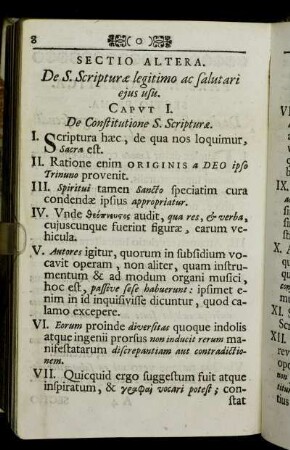 8
SECTIO ALTERA.
De S. Scripturæ legitimo ac salutari
ejus usu.
CAPVT I.
De Constitutione S. Scripturæ.
I. Scriptura hæc, de qua nos loquimur,
Sacra est.
II. Ratione enim ORIGINIS a DEO ipso
Trinuno provenit.
III. Spiritui tamen Sancto speciatim cura
condendæ ipsius appropriatur.
IV. Vnde θεόπνευςος audit, qua res, & verba,
cujuscunque fuerint figuræ, earum
vehicula.
V. Autores igitur, quorum in subsidium vo-
cavit operam, non aliter, quam instru-
mentum & ad modum organi musici,
hoc est, passive sese habuerunt: ipsimet e-
nim in id inquisivisse dicuntur, quod ca-
lamo excepere.
VI. Eorum proinde diversitas quoque indolis
atque ingenii prorsus non inducit rerum ma-
nifestatarum discrepantiam aut contradictio-
nem.
VII. Quicquid ergo suggestum fuit atque
inspiratum, & γραφαὶ vocari potest; con-
stat